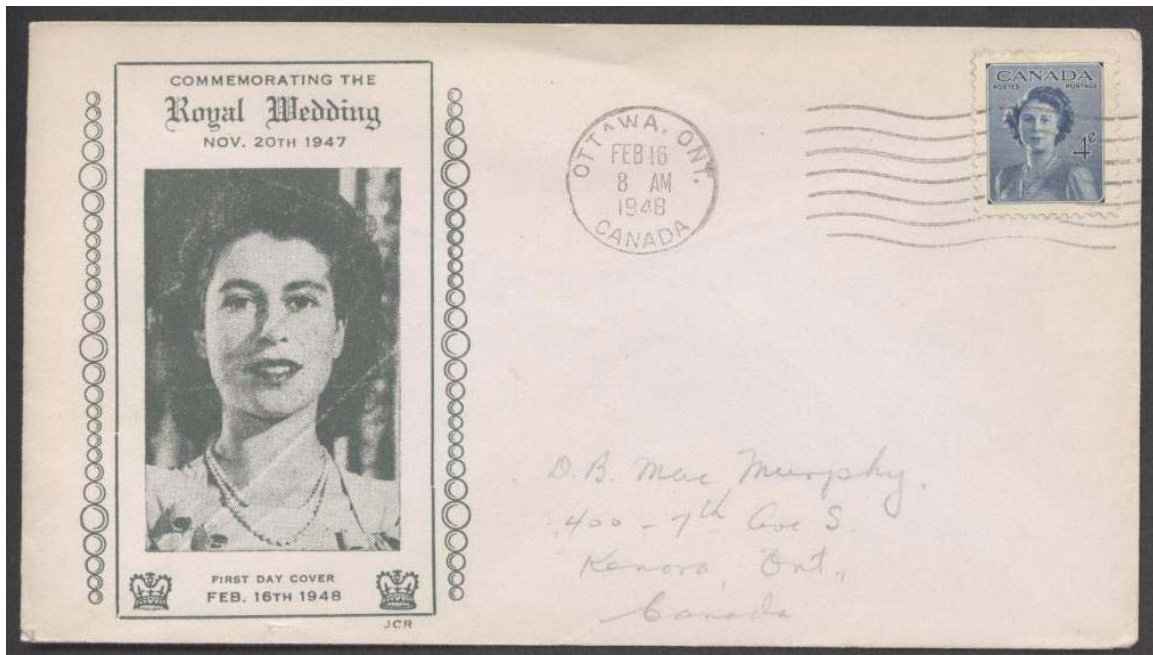 COMMEMORATING THE
Royal Wedding
NOV. 20TH 1947
FIRST DAY COVER
FEB. 16TH 1948
JCR
OTTAWA, ONT.
FEB 16
8 AM
1948
CANADA
CANADA
POSTES POSTAGE
4¢
D. B. Mac Murphy.
400 - 7th Ave S.
Kenora, Ont,
Canada